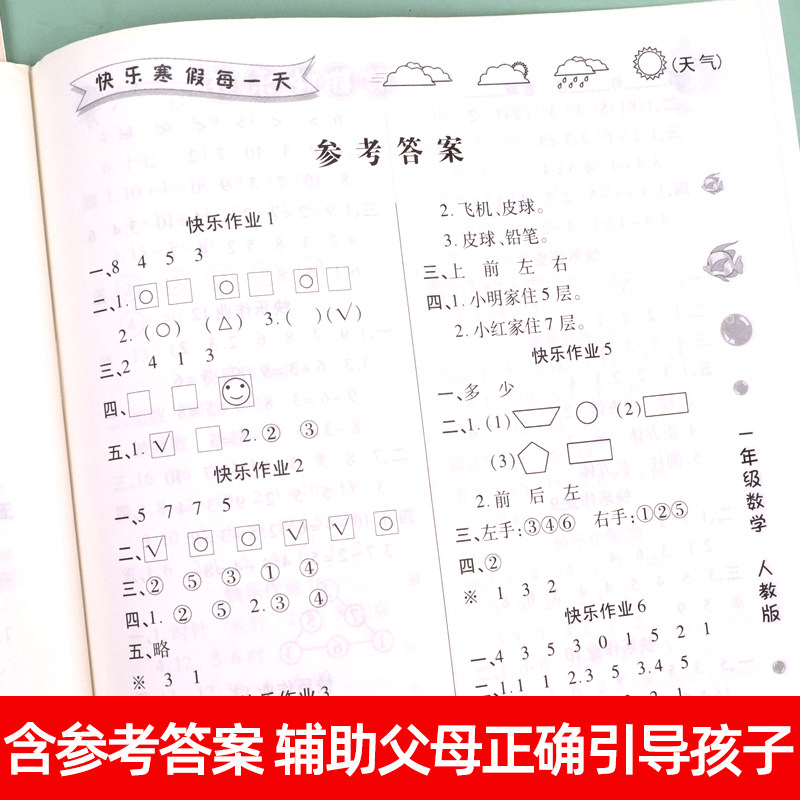 快乐寒假每一天
(天气)
参考答案
快乐作业1
一、8 4 5 3
二、1. ○ □ ○ □ ○ □
2.(○) (△) 3.( )(√)
三、2 4 1 3
四、
五、1. √ □ 2. ② ③
快乐作业2
一、5 7 7 5
二、√ ○ ○ √ √ ○
三、② ⑤ ③ ① ④
四、1. ② ⑤ 2. ③ ④
五、略
※ 3 1
快乐作业3
2.飞机、皮球。
3.皮球、铅笔。
三、上 前 左 右
四、1.小明家住5层。
2.小红家住7层。
快乐作业5
一、多 少
二、1.(1) (2)
(3)
2.前 后 左
三、左手:③④⑥ 右手:①②⑤
四、②
※ 1 3 2
快乐作业6
一、4 3 5 3 0 1 5 2 1
二、1.1 1 2.3 5 3.4 5
一年级数学 人教版
含参考答案 辅助父母正确引导孩子